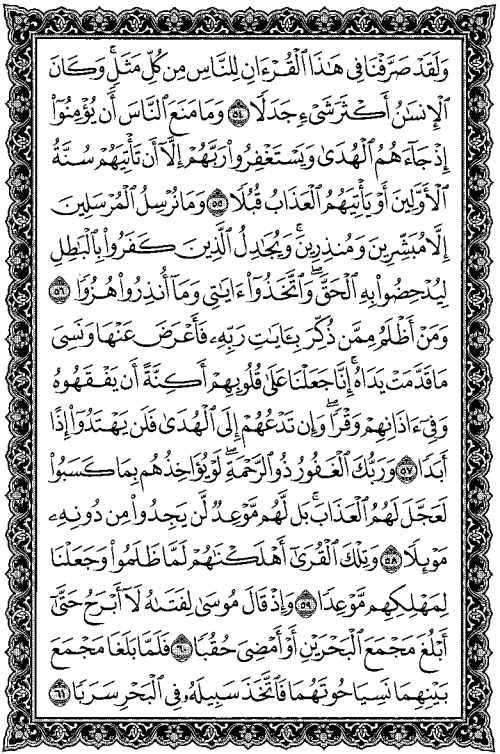 وَلَقَدْ صَرَّفْنَا فِي هَٰذَا الْقُرْءَانِ لِلنَّاسِ مِن كُلِّ مَثَلٍ ۚ وَكَانَ
الْإِنسَٰنُ أَكْثَرَ شَيْءٍ جَدَلًا ٥٤ وَمَا مَنَعَ النَّاسَ أَن يُؤْمِنُوٓا۟
إِذْ جَآءَهُمُ الْهُدَىٰ وَيَسْتَغْفِرُوا۟ رَبَّهُمْ إِلَّآ أَن تَأْتِيَهُمْ سُنَّةُ
الْأَوَّلِينَ أَوْ يَأْتِيَهُمُ الْعَذَابُ قُبُلًا ٥٥ وَمَا نُرْسِلُ الْمُرْسَلِينَ
إِلَّا مُبَشِّرِينَ وَمُنذِرِينَ ۚ وَيُجَٰدِلُ الَّذِينَ كَفَرُوا۟ بِالْبَٰطِلِ
لِيُدْحِضُوا۟ بِهِ الْحَقَّ ۖ وَاتَّخَذُوٓا۟ ءَايَٰتِي وَمَآ أُنذِرُوا۟ هُزُوًا ٥٦
وَمَنْ أَظْلَمُ مِمَّن ذُكِّرَ بِـَٔايَٰتِ رَبِّهِۦ فَأَعْرَضَ عَنْهَا وَنَسِيَ
مَا قَدَّمَتْ يَدَاهُ ۚ إِنَّا جَعَلْنَا عَلَىٰ قُلُوبِهِمْ أَكِنَّةً أَن يَفْقَهُوهُ
وَفِيٓ ءَاذَانِهِمْ وَقْرًا ۖ وَإِن تَدْعُهُمْ إِلَى الْهُدَىٰ فَلَن يَهْتَدُوٓا۟ إِذًا
أَبَدًا ٥٧ وَرَبُّكَ الْغَفُورُ ذُو الرَّحْمَةِ ۖ لَوْ يُؤَاخِذُهُم بِمَا كَسَبُوا۟
لَعَجَّلَ لَهُمُ الْعَذَابَ ۚ بَل لَّهُم مَّوْعِدٌ لَّن يَجِدُوا۟ مِن دُونِهِۦ
مَوْئِلًا ٥٨ وَتِلْكَ الْقُرَىٰٓ أَهْلَكْنَٰهُمْ لَمَّا ظَلَمُوا۟ وَجَعَلْنَا
لِمَهْلِكِهِم مَّوْعِدًا ٥٩ وَإِذْ قَالَ مُوسَىٰ لِفَتَىٰهُ لَآ أَبْرَحُ حَتَّىٰٓ
أَبْلُغَ مَجْمَعَ الْبَحْرَيْنِ أَوْ أَمْضِيَ حُقُبًا ٦٠ فَلَمَّا بَلَغَا مَجْمَعَ
بَيْنِهِمَا نَسِيَا حُوتَهُمَا فَاتَّخَذَ سَبِيلَهُۥ فِي الْبَحْرِ سَرَبًا ٦١